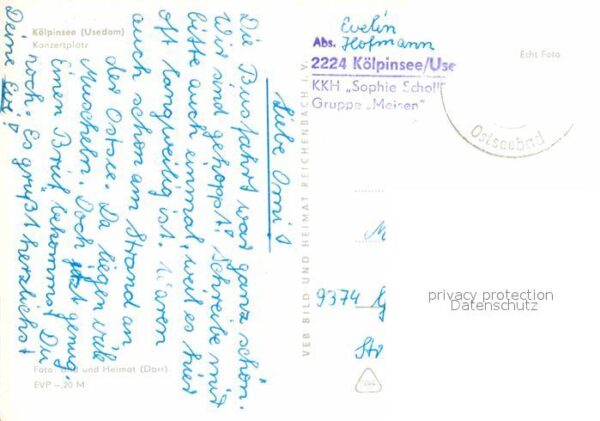 Kölpinsee (Usedom)
Konzertplatz
Liebe Omi!
Die Busfahrt war ganz schön.
Wir sind gehoppt! Schreibe mir
bitte auch einmal, weil es hier
oft langweilig ist. Waren
auch schon am Strand an
der Ostsee. Da liegen viele
Muscheln. Doch jetzt genug.
Einen Brief bekommst Du
noch. Es grüßt herzlichst
Deine Evi!
Foto: Bild und Heimat (Darr)
EVP -,20 M
VEB BILD UND HEIMAT REICHENBACH i. V.
Evelin
Abs. Hofmann
2224 Kölpinsee/Use
KKH „Sophie Scholl"
Gruppe „Meisen"
Echt Foto
Ostseebad
M
9374
Str
privacy protection
Datenschutz